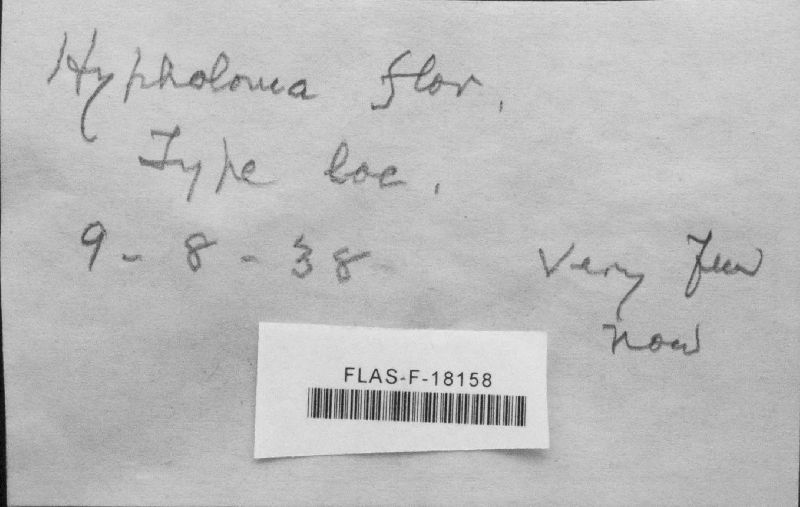 Hypholoma flor.
Type loc.
9-8-38
Very few
now
FLAS-F-18158